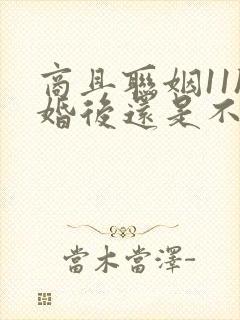 商且聯姻11
婚後還是不
當木當澤-